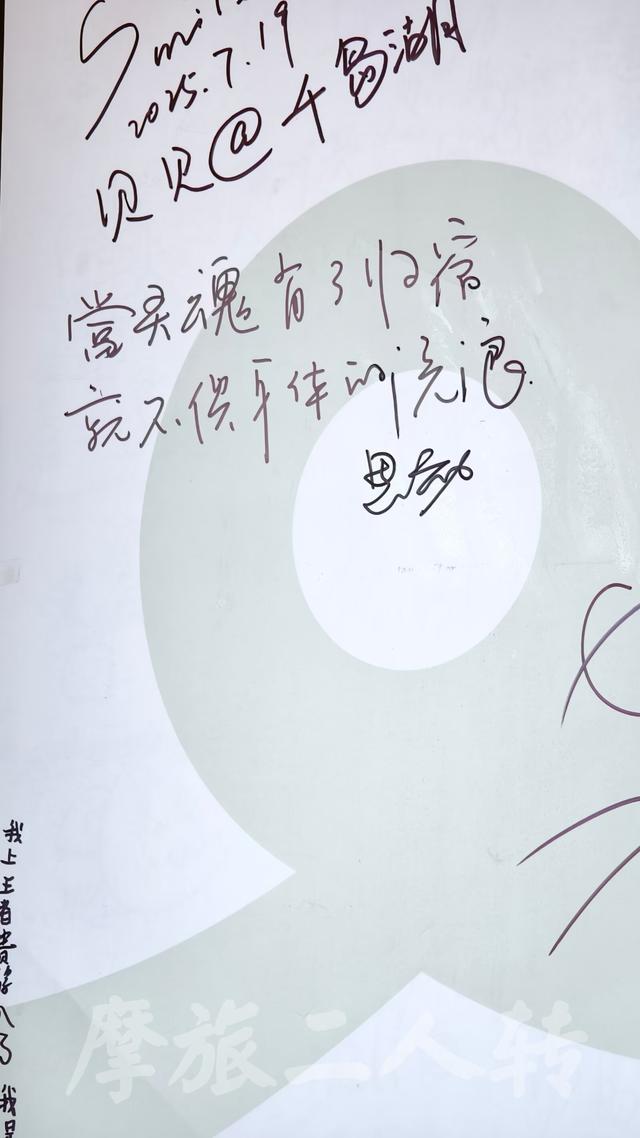 Smile
2025.7.19
贝贝@千岛湖
當灵魂有了归宿
就不惧身体的流浪.
我上王者贵
了 我是
摩旅二人转